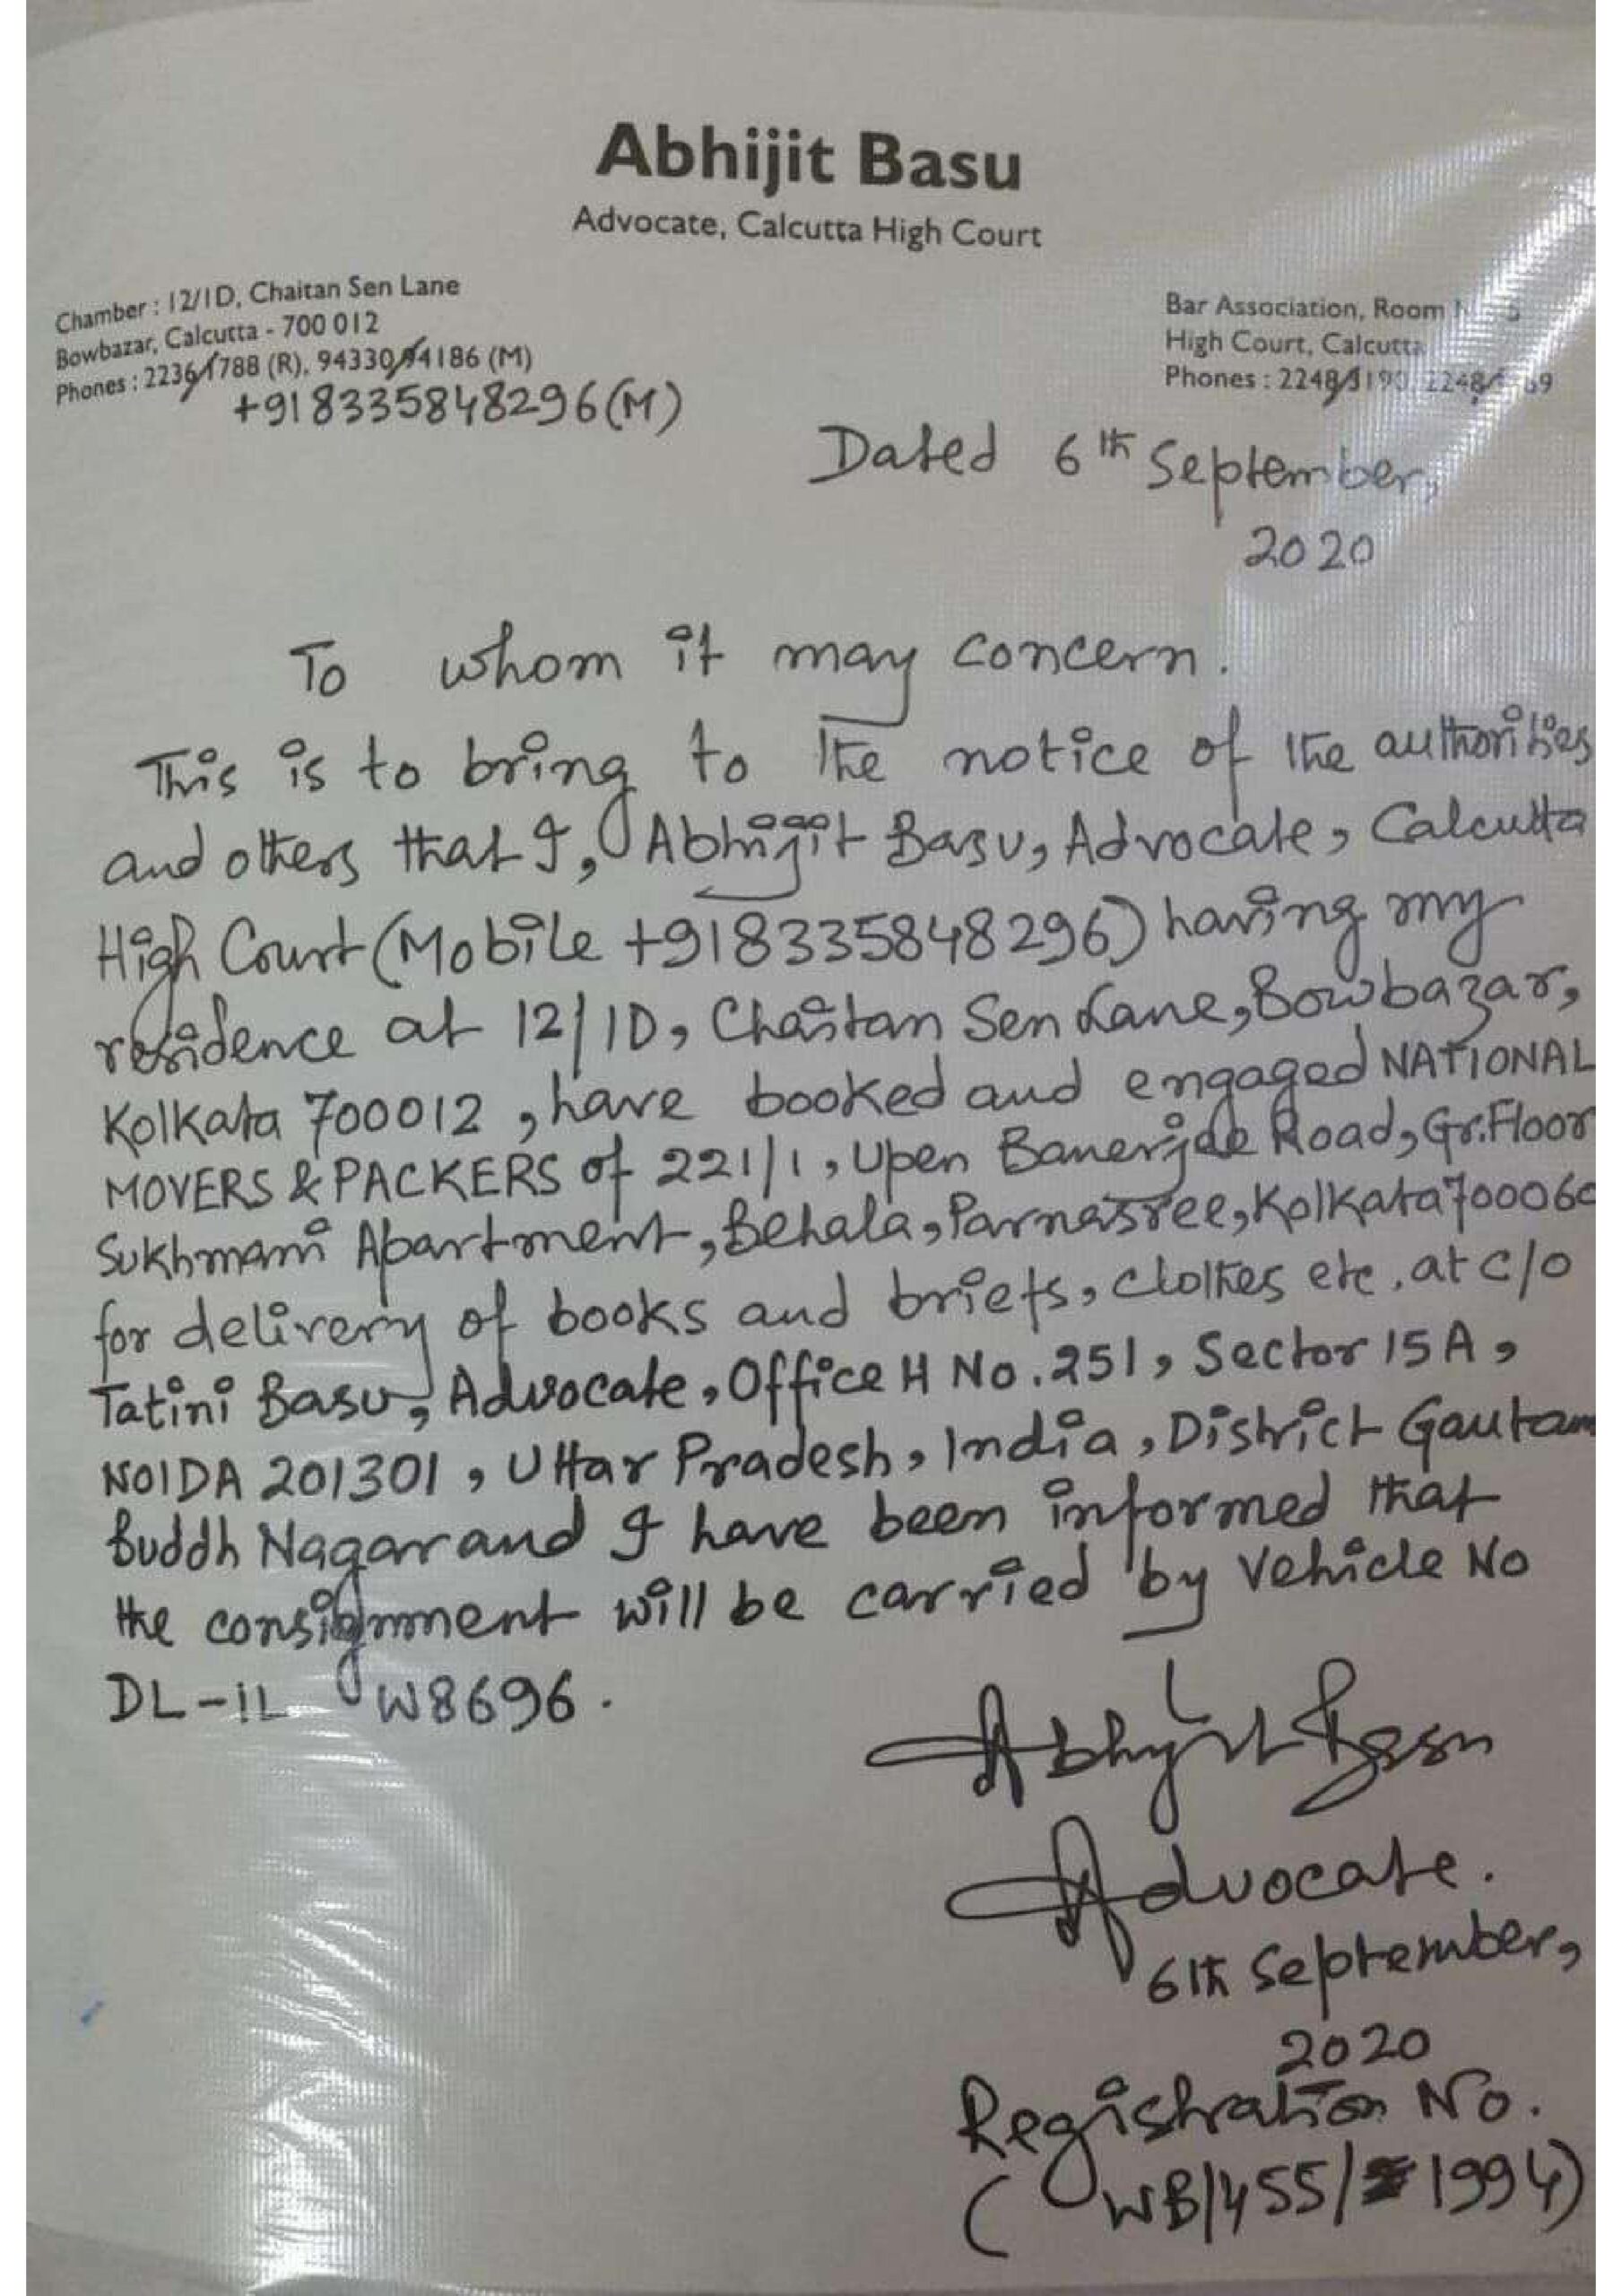 Abhijit Basu
Advocate, Calcutta High Court
Chamber : 12/1D, Chaitan Sen Lane
Bowbazar, Calcutta - 700 012
Phones : 2236/1788 (R), 94330/94186 (M)
+918335848296(M)
Bar Association, Room
High Court, Calcutta
Phones : 2248/3190,
Dated 6th September,
2020
To whom it may concern.
This is to bring to the notice of the authorities
and others that I, Abhijit Basu, Advocate, Calcutta
High Court (Mobile +918335848296) having my
residence at 12/1D, Chaitan Sen Lane, Bowbazar,
Kolkata 700012, have booked and engaged NATIONAL
MOVERS & PACKERS of 221/1, Upen Banerjee Road, Gr. Floor
Sukhmani Apartment, Behala, Parnasree, Kolkata 700060
for delivery of books and briefs, clothes etc. at c/o
Tatini Basu, Advocate, Office H No. 251, Sector 15A,
NOIDA 201301, Uttar Pradesh, India, District Gautam
Buddh Nagar and I have been informed that
the consignment will be carried by Vehicle No
DL-1L W8696.
Abhijit Basu
Advocate.
6th September,
2020
Registration No.
(WB/455/1994)